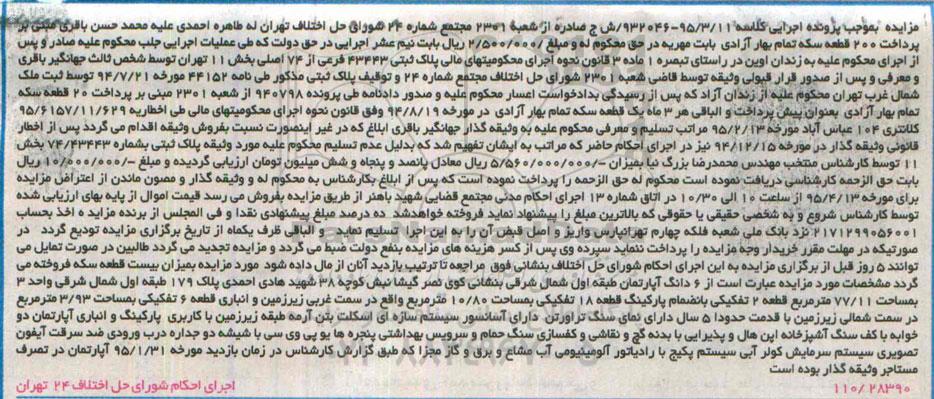 مزایده بموجب پرونده اجرایی کلاسه ۹۵/۳/۱۱-۹۳۲۰۴۶/ش ج صادره از شعبه ۲۳۰۱ مجتمع شماره ۲۴ شورای حل اختلاف تهران له طاهره احمدی علیه محمد حسن باقری مبنی بر
پرداخت ۲۰۰ قطعه سکه تمام بهار آزادی بابت مهریه در حق محکوم له و مبلغ ۲/۵۰۰/۰۰۰/ ریال بابت نیم عشر اجرایی در حق دولت که طی عملیات اجرایی جلب محکوم علیه صادر و پس
از اجرای محکوم علیه به زندان اوین در راستای تبصره ۱ ماده ۳ قانون نحوه اجرای محکومیتهای مالی پلاک ثبتی ۴۳۴۴۳ فرعی از ۷۴ اصلی بخش ۱۱ تهران توسط شخص ثالث جهانگیر باقری
و معرفی و پس از صدور قرار قبولی وثیقه توسط قاضی شعبه ۲۳۰۱ شورای حل اختلاف مجتمع شماره ۲۴ و توقیف پلاک ثبتی مذکور طی نامه ۴۴۱۵۲ مورخه ۹۴/۷/۲۱ توسط ثبت ملک
شمال غرب تهران محکوم علیه از زندان آزاد که پس از رسیدگی بدادخواست اعسار محکوم علیه و صدور دادنامه طی پرونده ۹۴۰۷۹۸ از شعبه ۲۳۰۱ مبنی بر پرداخت ۲۰ قطعه سکه
تمام بهار آزادی بعنوان پیش پرداخت و الباقی هر ۳ ماه یک قطعه سکه تمام بهار آزادی در مورخه ۹۴/۸/۱۹ وفق قانون نحوه اجرای محکومیتهای مالی طی اخطاریه ۹۵/۶۱۵۷/۱۱/۶۲۹
کلانتری ۱۰۴ عباس آباد مورخه ۹۵/۲/۱۳ مراتب تسلیم و معرفی محکوم علیه به وثیقه گذار جهانگیر باقری ابلاغ که در غیر اینصورت نسبت بفروش وثیقه اقدام می گردد پس از اخطار
قانونی وثیقه گذار در مورخه ۹۴/۱۲/۱۵ نیز در اجرای احکام حاضر که مراتب به ایشان تفهیم شد که بدلیل عدم تسلیم محکوم علیه مورد وثیقه پلاک ثبتی بشماره ۷۴/۴۳۴۴۳ بخش
۱۱ توسط کارشناس منتخب مهندس محمدرضا بزرگ نیا بمیزان ۵/۵۶۰/۰۰۰/۰۰۰/- ریال معادل پانصد و پنجاه و شش میلیون تومان ارزیابی گردیده و مبلغ ۱۰/۰۰۰/۰۰۰/- ریال
بابت حق الزحمه کارشناسی دریافت نموده است محکوم له حق الزحمه را پرداخت نموده است که پس از ابلاغ بکارشناس به محکوم له و وثیقه گذار و مصون ماندن از اعتراض مزایده
برای مورخه ۹۵/۴/۱۳ از ساعت ۱۰ الی ۱۰/۳۰ در اتاق شماره ۱۳ اجرای احکام مدنی مجتمع قضایی شهید باهنر از طریق مزایده بفروش می رسد قیمت اموال از پایه بهای ارزیابی شده
توسط کارشناس شروع و به شخصی حقیقی یا حقوقی که بالاترین مبلغ را پیشنهاد نماید فروخته خواهدشد ده درصد مبلغ پیشنهادی نقدا و فی المجلس از برنده مزاید ه اخذ بحساب
۲۱۷۱۲۹۹۰۵۶۰۰۱ نزد بانک ملی شعبه فلکه چهارم تهرانپارس واریز و اصل قبض آن را به این اجرا تسلیم نماید و الباقی ظرف یکماه از تاریخ برگزاری مزایده تودیع گردد در
صورتیکه در مهلت مقرر خریدار وجه مزایده را پرداخت ننماید سپرده وی پس از کسر هزینه های مزایده بنفع دولت ضبط می گردد و مزایده تجدید می گردد طالبین در صورت تمایل می
توانند ۵ روز قبل از برگزاری مزایده به این اجرای احکام شورای حل اختلاف بنشانی فوق مراجعه تا ترتیب بازدید آنان از مال داده شود مورد مزایده بمیزان بیست قطعه سکه فروخته می
گردد مشخصات مورد مزایده عبارت است از ۶ دانگ آپارتمان طبقه اول شمال شرقی بنشانی کوی نصر گیشا نبش کوچه ۳۸ شهید هادی احمدی پلاک ۱۷۹ طبقه اول شمال شرقی واحد ۳
بمساحت ۷۷/۱۱ مترمربع قطعه ۲ تفکیکی بانضمام پارکینگ قطعه ۱۸ تفکیکی بمساحت ۱۰/۸۰ مترمربع واقع در سمت غربی زیرزمین و انباری قطعه ۶ تفکیکی بمساحت ۳/۹۳ مترمربع
در سمت شمالی زیرزمین با قدمت حدودا ۵ سال دارای نمای سنگ تراورتن دارای آسانسور سیستم سازه ای اسکلت بتن آرمه طبقه زیرزمین با کاربری پارکینگ و انباری آپارتمان دو
خوابه با کف سنگ آشپزخانه اپن هال و پذیرایی با بدنه گچ و نقاشی و کفسازی سنگ حمام و سرویس بهداشتی پنجره ها یو پی وی سی با شیشه دو جداره درب ورودی ضد سرقت آیفون
تصویری سیستم سرمایش کولر آبی سیستم پکیج با رادیاتور آلومینیومی آب مشاع و برق و گاز مجزا که طبق گزارش کارشناس در زمان بازدید مورخه ۹۵/۱/۳۱ آپارتمان در تصرف
مستاجر وثیقه گذار بوده است
۱۱۰/۲۸۳۹۰ اجرای احکام شورای حل اختلاف ۲۴ تهران